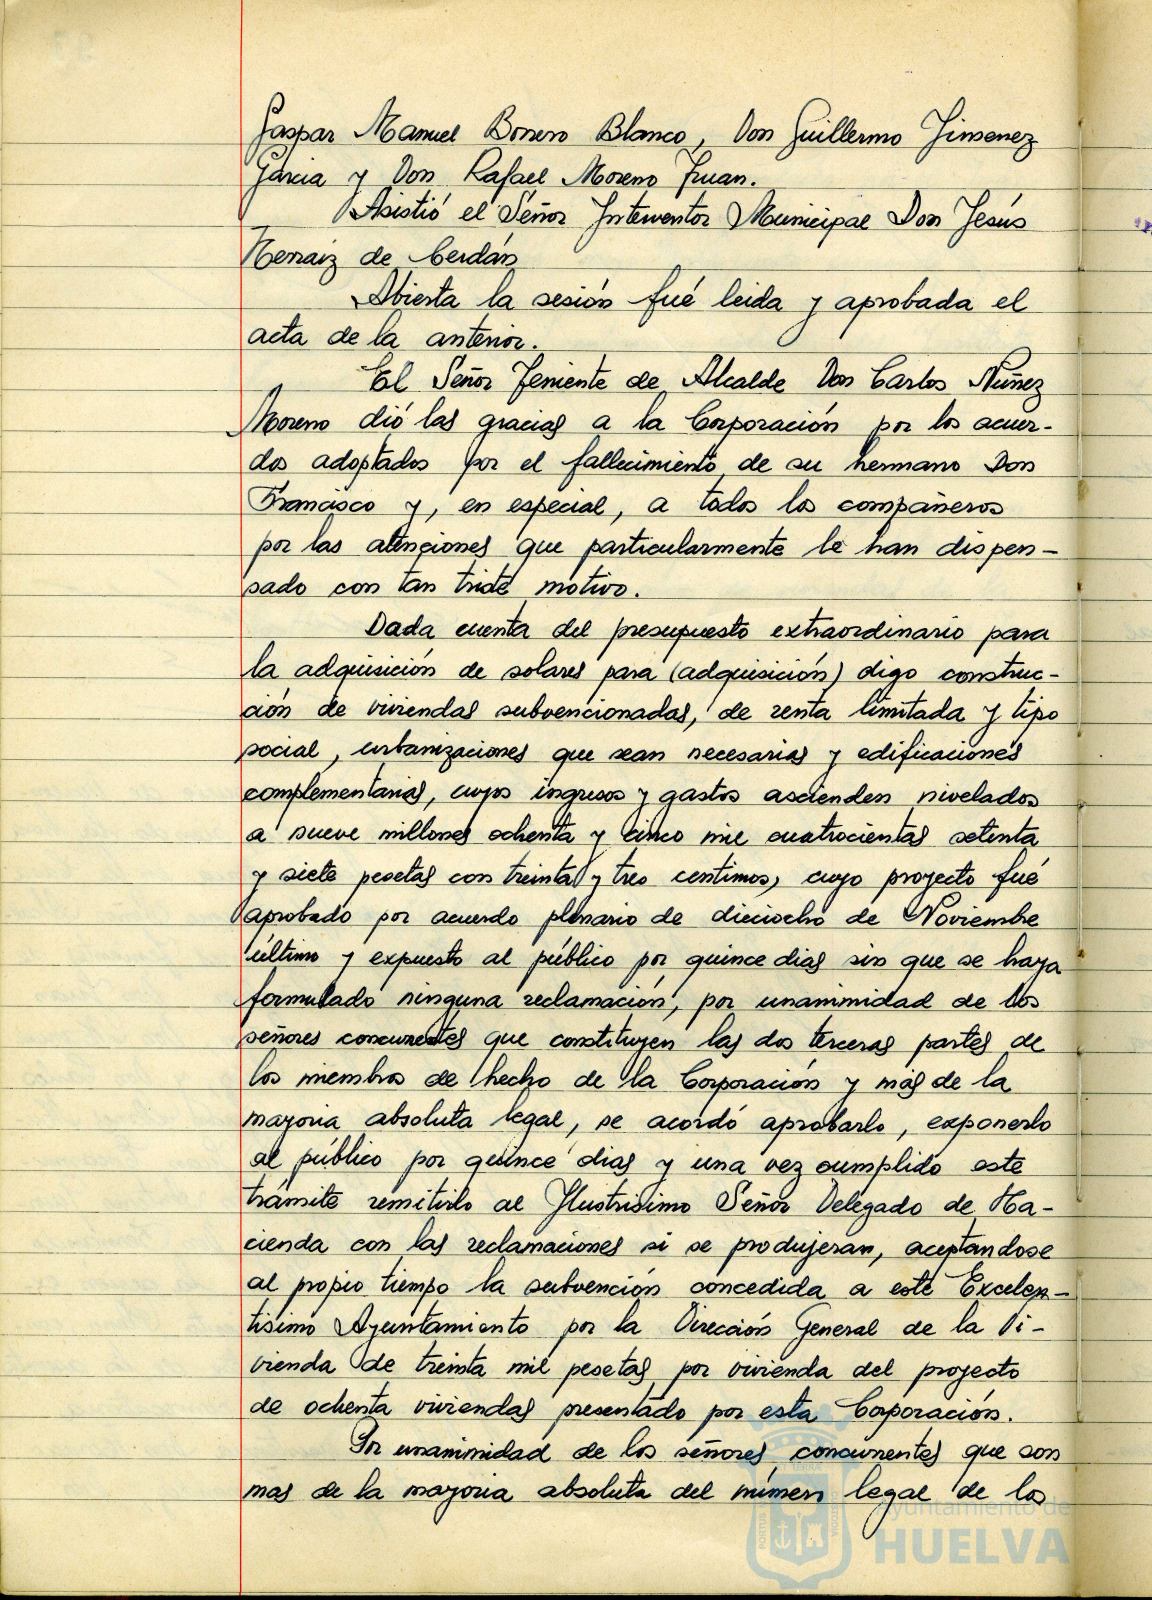 Gaspar Manuel Bonero Blanco, Don Guillermo Jimenez
Garcia y Don Rafael Moreno Juan.
Asistió el Señor Interventor Municipal Don Jesús
de Cerdán
Abierta la sesión fué leida y aprobada el
acta de la anterior.
El Señor Teniente de Alcalde Don Carlos Núñez
Moreno dió las gracias a la Corporación por los acuer-
dos adoptados por el fallecimiento de su hermano Don
Francisco y, en especial, a todos los compañeros
por las atenciones que particularmente le han dispen-
sado con tan triste motivo.
Dada cuenta del presupuesto extraordinario para
la adquisición de solares para (adquisición) digo construc-
ción de viviendas subvencionadas, de renta limitada y tipo
social, urbanizaciones que sean necesarias y edificaciones
complementarias, cuyos ingresos y gastos ascienden nivelados
a nueve millones ochenta y cinco mil cuatrocientas setenta
y siete pesetas con treinta y tres centimos, cuyo proyecto fué
aprobado por acuerdo plenario de dieciocho de Noviembre
último y expuesto al público por quince dias sin que se haya
formulado ninguna reclamación, por unanimidad de los
señores concurrentes que constituyen las dos terceras partes de
los miembros de hecho de la Corporación y más de la
mayoria absoluta legal, se acordó aprobarlo, exponerlo
al público por quince dias y una vez cumplido este
trámite remitirlo al Ilustrisimo Señor Delegado de Ha-
cienda con las reclamaciones si se produjeran, aceptandose
al propio tiempo la subvención concedida a este Excelen-
tisimo Ayuntamiento por la Dirección General de la Vi-
vienda de treinta mil pesetas por vivienda del proyecto
de ochenta viviendas presentado por esta Corporación.
Por unanimidad de los señores concurrentes que son
mas de la mayoria absoluta del número legal de los
Ayuntamiento de
HUELVA